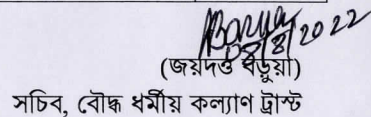 ABarua
08/8/2022
(জয়দত্ত বড়ুয়া)
সচিব, বৌদ্ধ ধর্মীয় কল্যাণ ট্রাস্ট